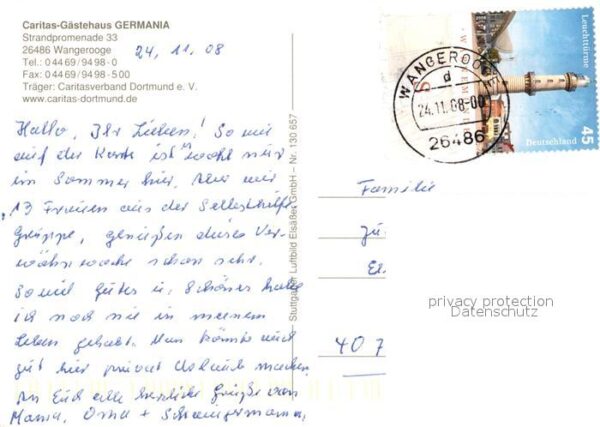 Caritas-Gästehaus GERMANIA
Strandpromenade 33
26486 Wangerooge
Tel.: 0 44 69 / 94 98 - 0
Fax: 0 44 69 / 94 98 - 5 00
Träger: Caritasverband Dortmund e. V.
www.caritas-dortmund.de
24. 11. 08
Hallo, Ihr Lieben! So wie
auf der Karte ist wohl nur
im Sommer hier. Aber wir
13 Frauen aus der Selbsthilfe
gruppe, genießen diese Ver-
wöhnwoche schon sehr.
So viel gutes u. Schönes habe
ich noch nie in meinem
Leben gehabt. Man könnte auch
gut hier privat Urlaub machen.
An Euch alle herzliche Grüße von
Mama, Oma + Schwiegermama.
Stuttgarter Luftbild Elsäßer GmbH – Nr. 130 657
WANGEROOGE
d
24.11.08-00
26486
Leuchttürme
Deutschland
45
Familie
407
privacy protection
Datenschutz